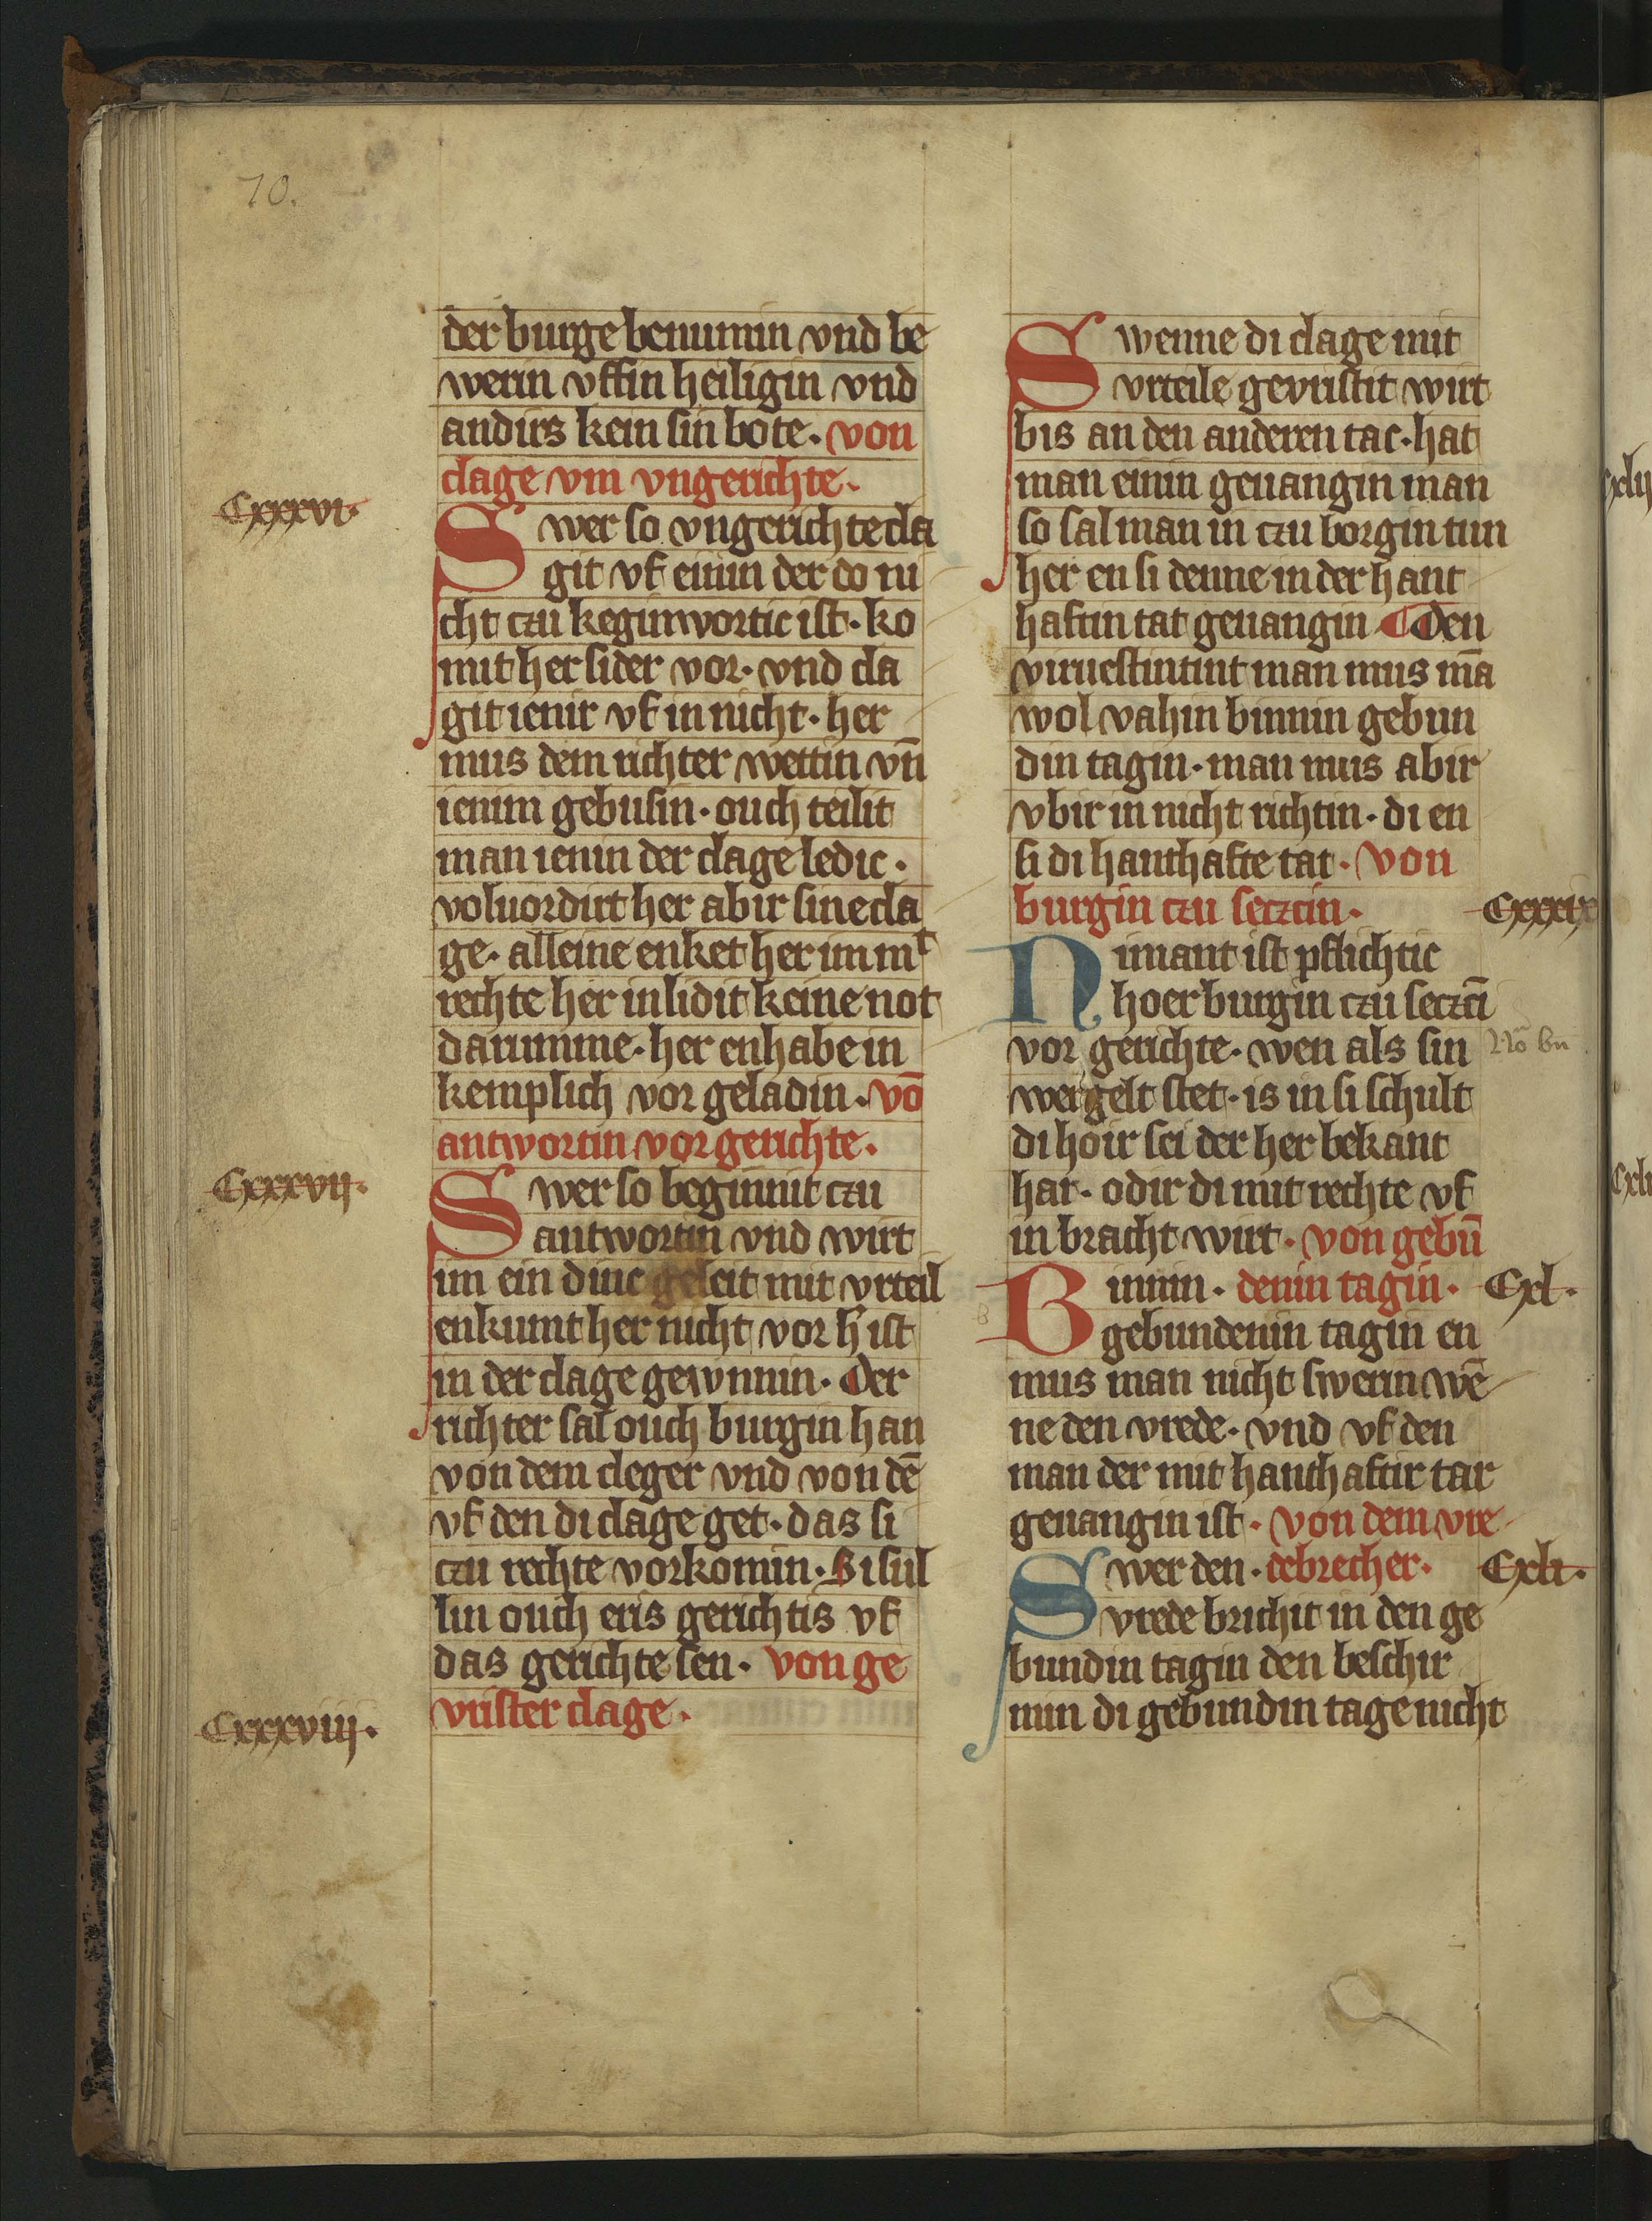 70.
der burge benumin vnd be
werin vffin heiligin vnd
andirs kein sin bote. von
clage vm vngerichte.
Cxxxvi.
Swer so vngerichte cla
git vf einin der do ni
cht czu keginwortic ist. ko
mit her sider vor. vnd cla
git ienir vf in nicht. her
mus dem richter wettin vn̄
ienim gebusin. ouch teilit
man ienin der clage ledic.
voluordirt her abir sine cla
ge. alleine enket her im mᵗ
rechte her inlidit keine not
darumme. her enhabe in
kemplich vor geladin. vō
antwortin vor gerichte.
Cxxxvii.
Swer so beginnit czu
antwortin vnd wirt
im ein dinc geleit mit vrteil
enkumt her nicht vor h̄ ist
in der clage gewnnin. Der
richter sal ouch burgin han
von dem cleger vnd von dē
vf den di clage get. das si
czu rechte vorkomin. Si sul
lin ouch eris gerichtis vf
das gerichte sen. von ge
vrister clage.
Cxxxviii.
Swenne di clage mit
vrteile gevristit wirt
bis an den anderen tac. hat
man einin geuangin man
so sal man in czu borgin tun
her en si denne in der hant
haftin tat geuangin ¶ Den
viruestintint man mus mā
wol vahin binnin gebun
din tagin. man mus abir
vbir in nicht richtin. di en
si di hanthafte tat. von
burgin czu seczcin.
Cxxxix
Nimant ist pflichtic
hoer burgin czu seczcī
vor gerichte. wen als sin
wergelt stet. is in si schult
di hoir sei der her bekant
hat. odir di mit rechte vf
in bracht wirt. von gebū
Binnin. denin tagin.
Cxl.
gebundenin tagin en
mus man nicht swerin wē
ne den vrede. vnd vf den
man der mit hanthaftir tat
geuangin ist. von dem vre
Swer den. debrecher.
Cxli.
vrede brichit in den ge
bundin tagin den beschir
min di gebundin tage nicht